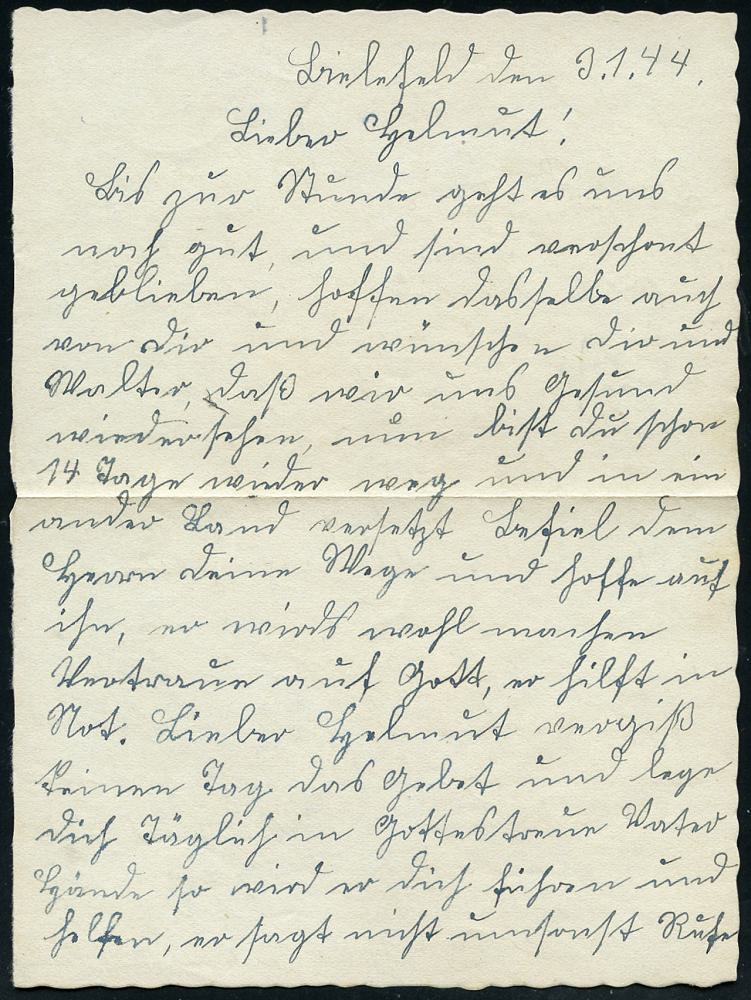 Bielefeld den 3.1.44.
Lieber Helmut!
Bis zur Stunde geht es uns
noch gut, und sind verschont
geblieben, hoffen dasselbe auch
von Dir und wünschen Dir und
Walter, daß wir uns Gesund
wiedersehen, nun bist Du schon
14 Tage wieder weg und in ein
ander Land versetzt Befiel dem
Herrn Deine Wege und hoffe auf
ihn, er wirds wohl machen
Vertraue auf Gott, er hilft in
Not. Lieber Helmut vergiß
keinen Tag das Gebet und lege
Dich Täglich in Gottes treue Vater
Hände so wird er Dich führen und
helfen, er sagt nicht umsonst Rufe